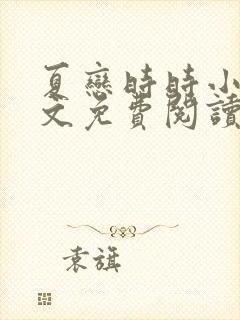 夏戀時時小
文免費閱讀
袁旗